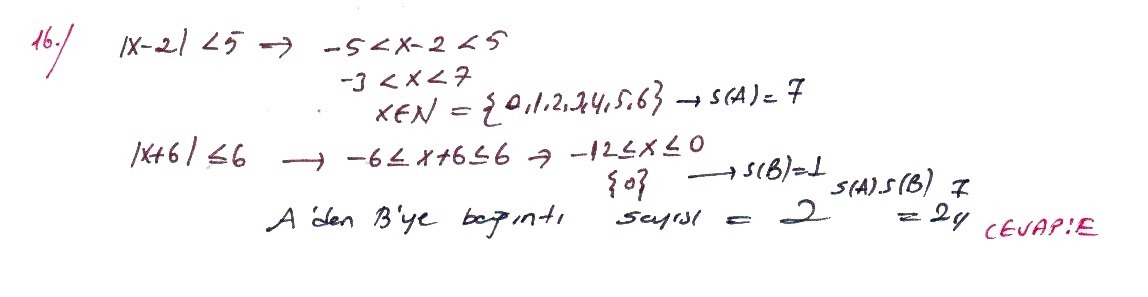 16./ |x-2| <5 → -5<x-2<5
-3 <x<7
x∈N = {0,1,2,3,4,5,6} → s(A)= 7
|x+6| ≤6 → -6≤x+6≤6 → -12≤x≤0
{0} → s(B)=1
A'den B'ye bağıntı sayısı = 2^{s(A).s(B)} = 2^7 // CEVAP:E